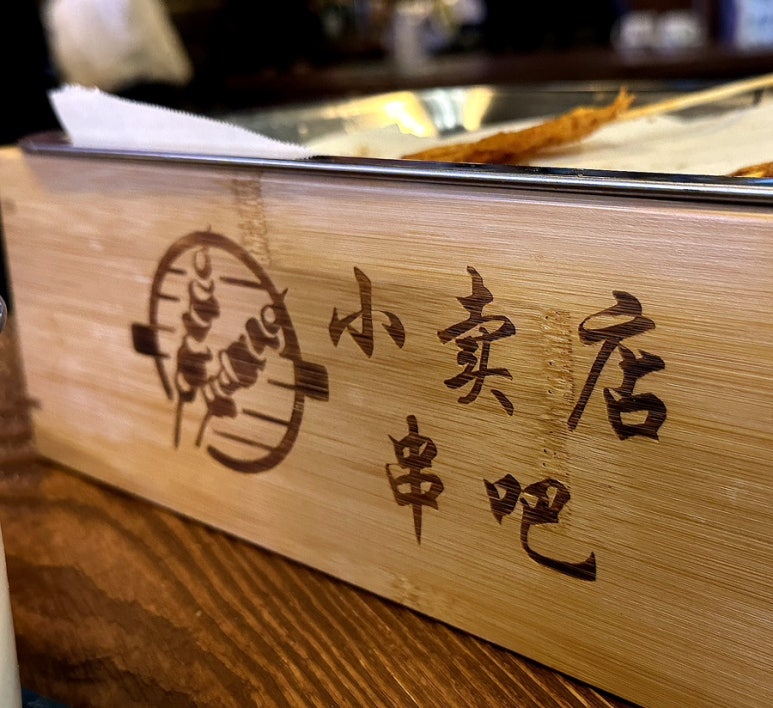 小卖店
串吧